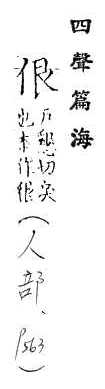 四聲篇海
佷
戶懇切戾
也本作很
(人部、
P563)